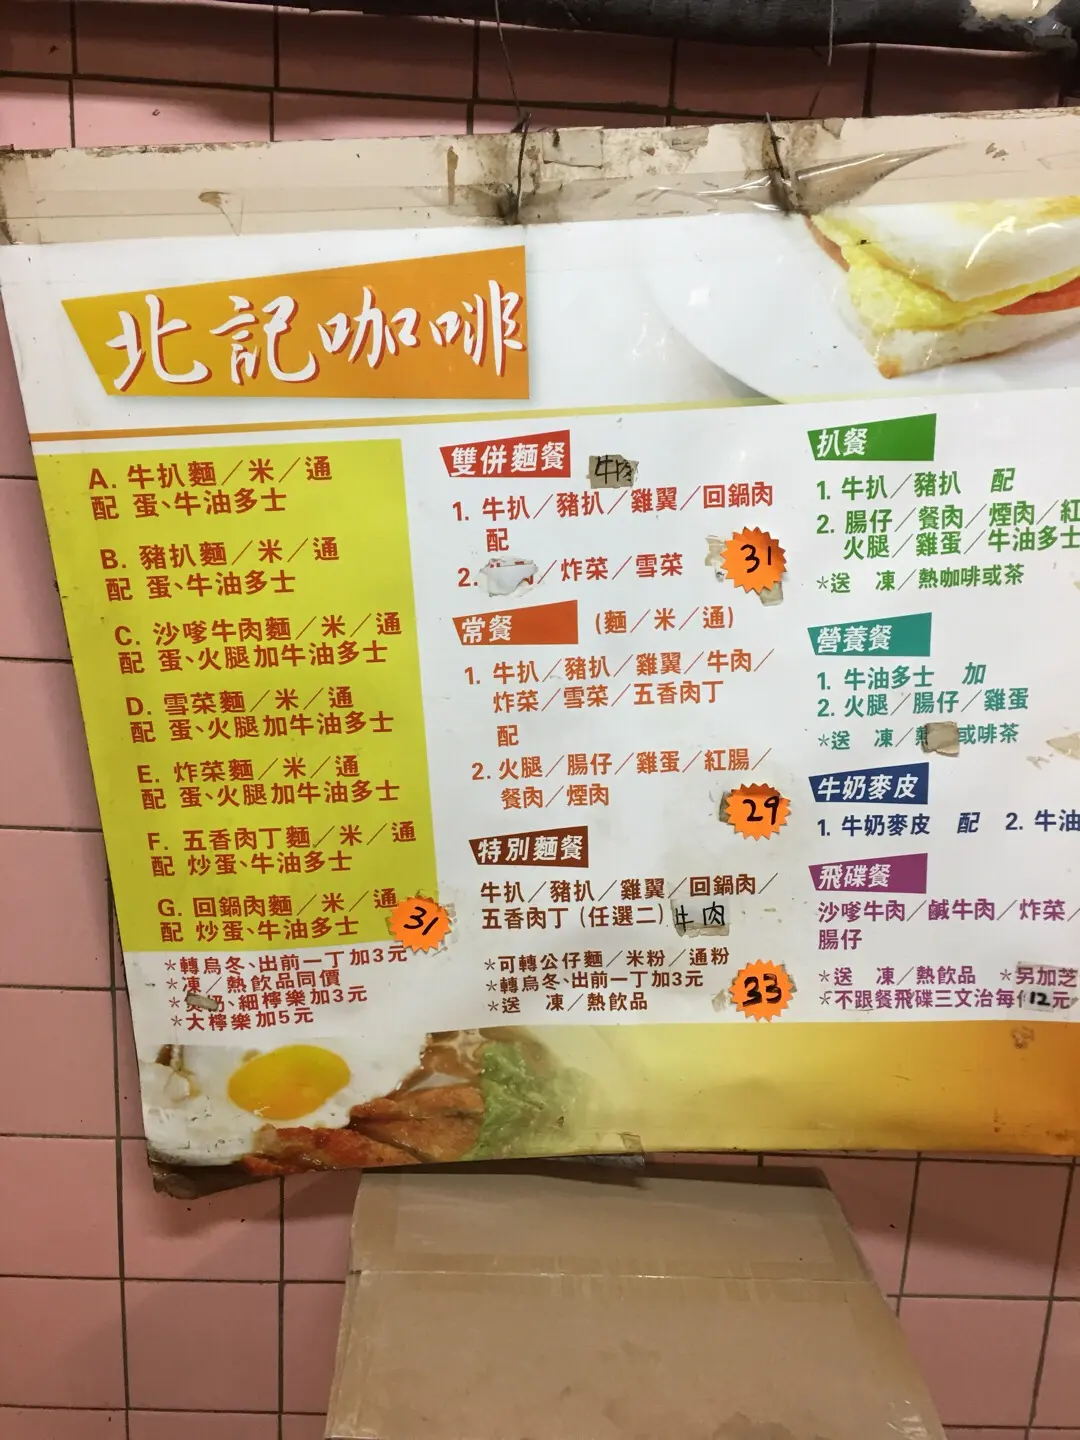 北記咖啡
A. 牛扒麵／米／通
配 蛋、牛油多士
B. 豬扒麵／米／通
配 蛋、牛油多士
C. 沙嗲牛肉麵／米／通
配 蛋、火腿加牛油多士
D. 雪菜麵／米／通
配 蛋、火腿加牛油多士
E. 炸菜麵／米／通
配 蛋、火腿加牛油多士
F. 五香肉丁麵／米／通
配 炒蛋、牛油多士
G. 回鍋肉麵／米／通
配 炒蛋、牛油多士
31
*轉烏冬、出前一丁加3元
*凍／熱飲品同價
*奶、細檸樂加3元
*大檸樂加5元
雙併麵餐
牛肉
1. 牛扒／豬扒／雞翼／回鍋肉
配
2. ／炸菜／雪菜
31
常餐 (麵／米／通)
1. 牛扒／豬扒／雞翼／牛肉／
炸菜／雪菜／五香肉丁
配
2. 火腿／腸仔／雞蛋／紅腸／
餐肉／煙肉
29
特別麵餐
牛扒／豬扒／雞翼／回鍋肉／
五香肉丁 (任選二) 牛肉
*可轉公仔麵／米粉／通粉
*轉烏冬、出前一丁加3元
*送 凍／熱飲品
33
扒餐
1. 牛扒／豬扒 配
2. 腸仔／餐肉／煙肉／紅
火腿／雞蛋／牛油多士
*送 凍／熱咖啡或茶
營養餐
1. 牛油多士 加
2. 火腿／腸仔／雞蛋
*送 凍／或啡茶
牛奶麥皮
1. 牛奶麥皮 配 2. 牛油
飛碟餐
沙嗲牛肉／鹹牛肉／炸菜／
腸仔
*送 凍／熱飲品 *另加芝
*不跟餐飛碟三文治每12元